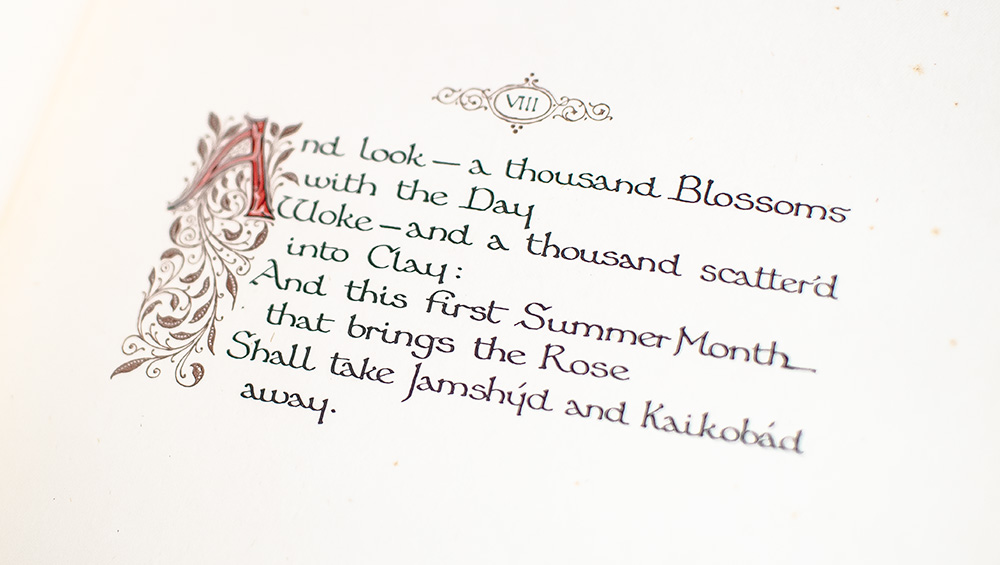 VIII
And look — a thousand Blossoms
with the Day
Woke — and a thousand scatter'd
into Clay:
And this first Summer Month
that brings the Rose
Shall take Jamshýd and Kaikobád
away.